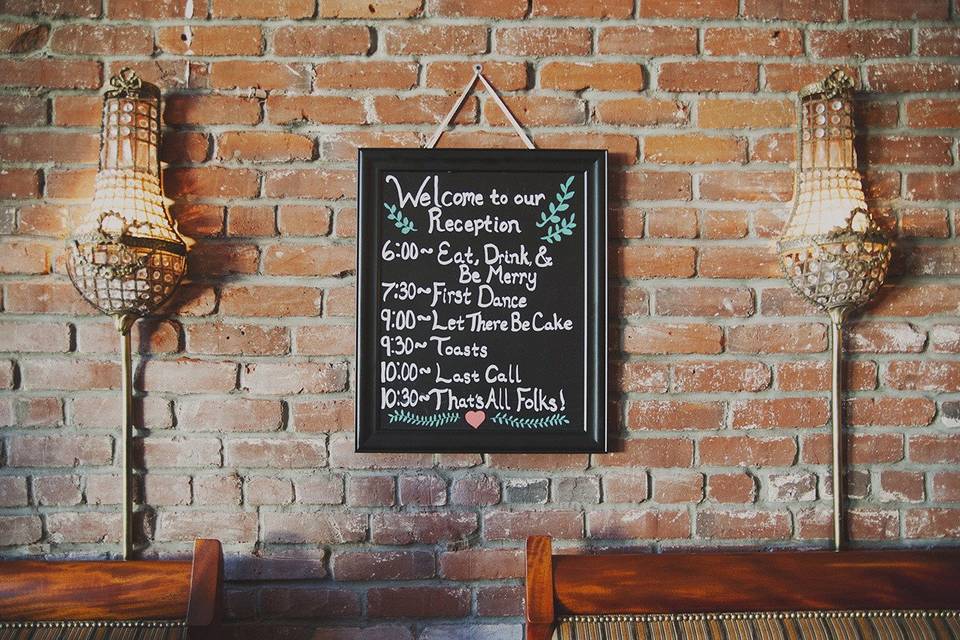 Welcome to our
Reception
6:00~ Eat, Drink, &
Be Merry
7:30~ First Dance
9:00~ Let There Be Cake
9:30~ Toasts
10:00~ Last Call
10:30~ That's All Folks!